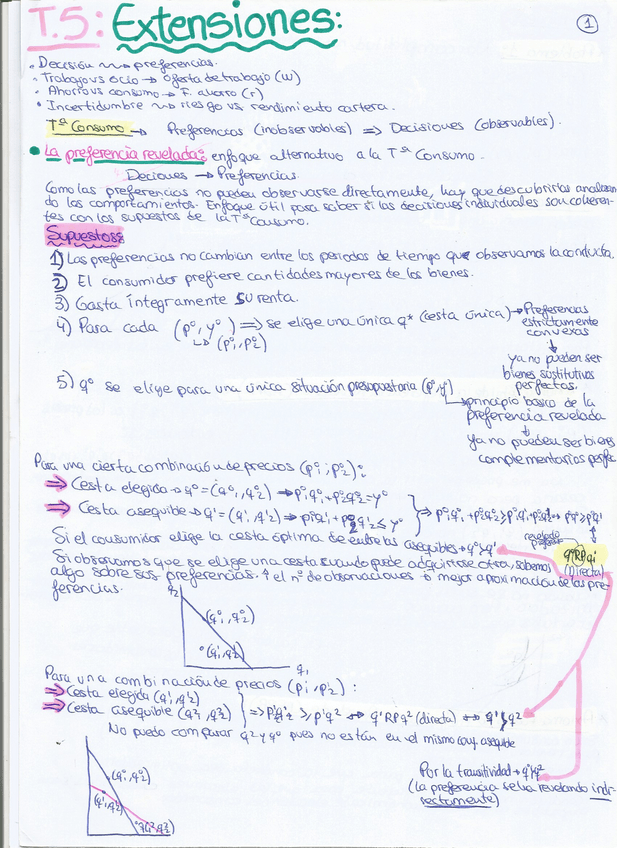 T.5: Extensiones:
1
• Decisión → preferencias.
• Trabajo vs ocio → oferta de trabajo (w)
• Ahorro vs consumo → F. ahorro (r)
• Incertidumbre → riesgo vs rendimiento cartera.
Tª Consumo → Preferencias (inobservables) ⇒ Decisiones (observables).
• La preferencia revelada: enfoque alternativo a la Tª Consumo.
Deciones → Preferencias
Como las preferencias no pueden observarse directamente, hay que descubrirlas analizan
do los comportamientos. Enfoque útil para saber si las decisiones individuales son coheren-
tes con los supuestos de la Tª Consumo.
Supuestos:
1) Las preferencias no cambian entre los periodos de tiempo que observamos la conducta.
2) El consumidor prefiere cantidades mayores de los bienes.
3) Gasta íntegramente su renta.
4) Para cada (p⁰, y⁰) ⇒ se elige una única q* (cesta única) → Preferencias
estrictamente
convexas
(p⁰₁, p⁰₂)
ya no pueden ser
bienes sustitutivos
perfectos.
5) q⁰ se elige para una única situación presupuestaria (p⁰, y⁰)
principio básico de la
preferencia revelada
ya no pueden ser bienes
complementarios perfec
Para una cierta combinación de precios (p⁰₁; p⁰₂):
⇒ Cesta elegida → q⁰ = (q⁰₁, q⁰₂) ⇒ p⁰₁q⁰₁ + p⁰₂q⁰₂ = y⁰
⇒ Cesta asequible → q¹ = (q¹₁, q¹₂) ⇒ p⁰₁q¹₁ + p⁰₂q¹₂ ≤ y⁰
⇒ p⁰₁q⁰₁ + p⁰₂q⁰₂ ≥ p⁰₁q¹₁ + p⁰₂q¹₂ ↔ p⁰q⁰ ≥ p⁰q¹
Si el consumidor elige la cesta óptima de entre las asequibles → q⁰ ≻ q¹
revelada
preferida
q⁰RPq¹
(Directa)
Si observamos que se elige una cesta cuando puede adquirirse otra, sabemos
algo sobre sus preferencias. ↑ el nº de observaciones → mejor aproximación de las pre-
ferencias.
q₂
(q⁰₁, q⁰₂)
(q¹₁, q¹₂)
q₁
Para una combinación de precios (p¹₁, p¹₂):
⇒ Cesta elegida (q¹₁, q¹₂)
⇒ Cesta asequible (q²₁, q²₂)
⇒ p¹q¹ ≥ p¹q² ↔ q¹RPq² (directa) ↔ q¹ ≻ q²
No puedo comparar q² y q⁰ pues no están en el mismo conj. asequible
(q⁰₁, q⁰₂)
(q¹₁, q¹₂)
(q²₁, q²₂)
Por la transitividad → q⁰ ≻ q²
(La preferencia se ha revelando indi-
rectamente)